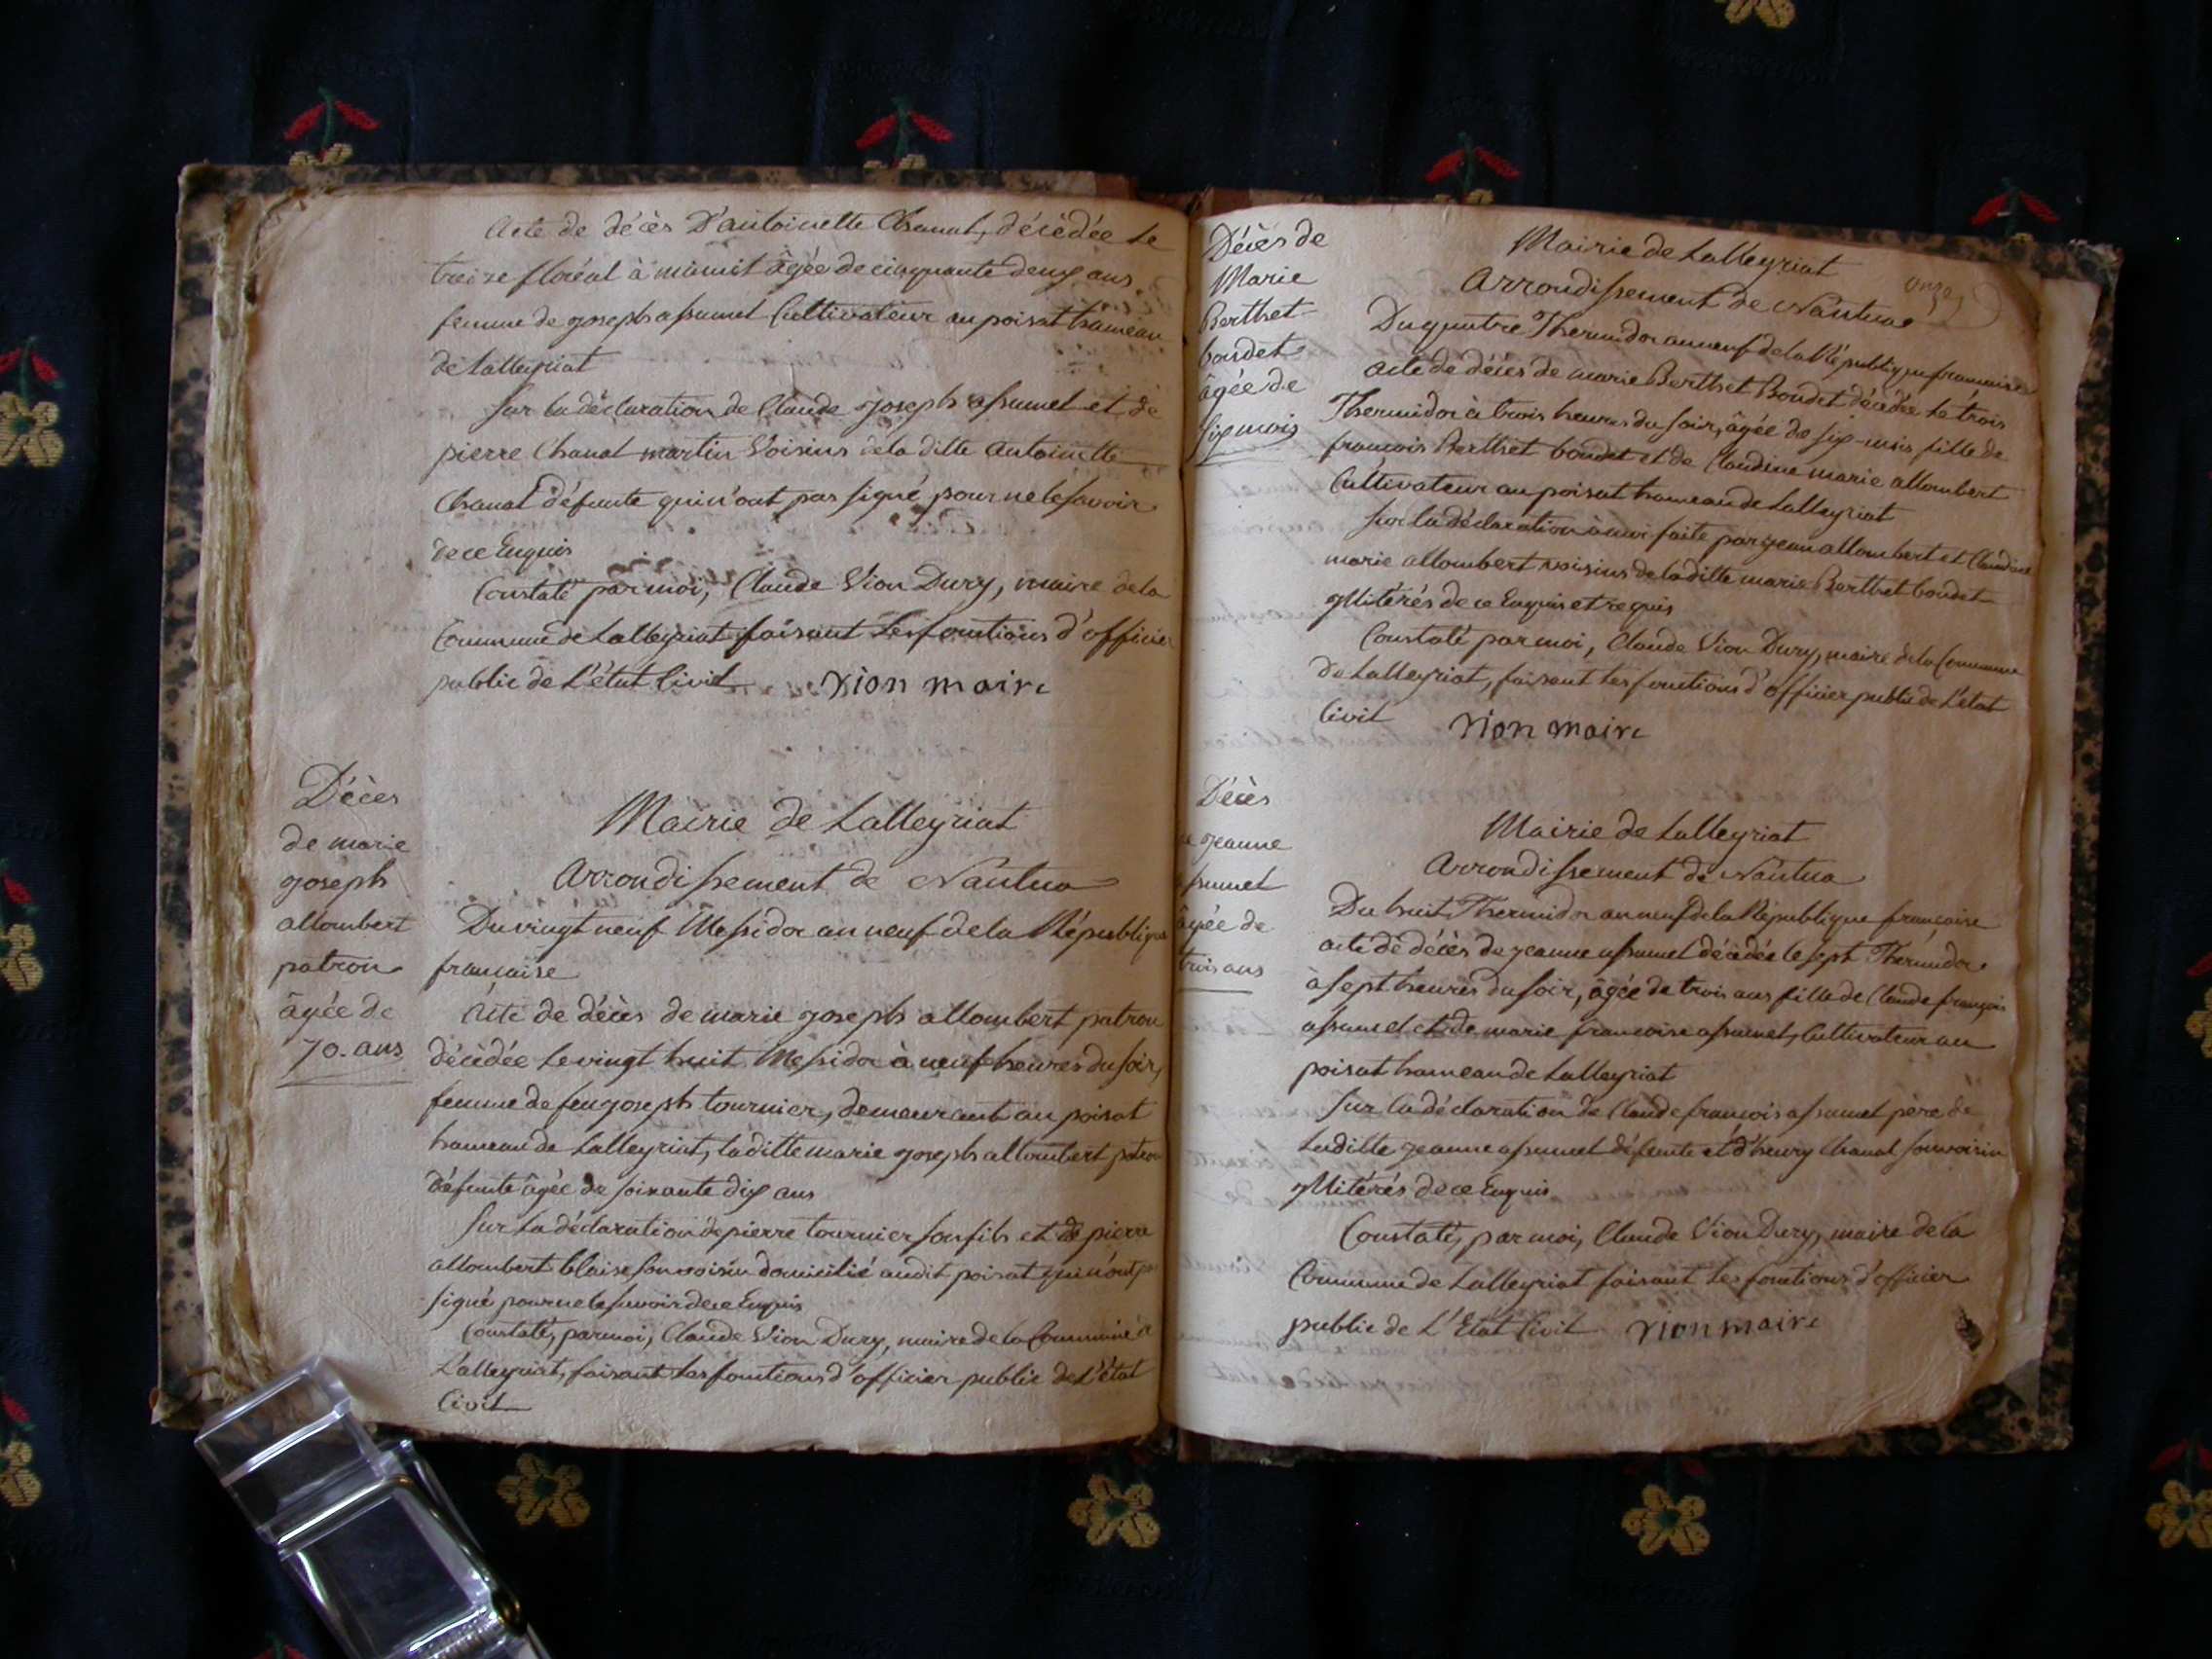 acte de décès D'antoinette Chanal, décèdée le
treize floréal à minuit âgée de cinquante deux ans
femme de joseph assumel Cultivateur au poisat hameau
de Lalleyriat
Sur la déclaration de Claude joseph assumel et de
pierre Chanal martin Voisins de la ditte antoinette
Chanal défunte qui n'ont pas signé pour ne le savoir
de ce Enquis
Constaté par moi, Claude Vion Dury, maire de la
Commune de Lalleyriat faisant les fonctions d'officier
public de L'état Civil Vion maire
Décès
de marie
joseph
allombert
patron
âgée de
70. ans
Mairie de Lalleyriat
Arrondissement de Nantua
Du vingt neuf Messidor an neuf de la République
française
Acte de décès de marie joseph allombert patron
décèdée le vingt huit Messidor à neuf heures du soir,
femme de feu joseph tournier, demeurant au poisat
hameau de Lalleyriat, laditte marie joseph allombert patron
défunte âgée de soixante dix ans
Sur la déclaration de pierre tournier son fils et de pierre
allombert blaise son voisin domicilié audit poisat qui n'ont pas
signé pour ne le savoir de ce Enquis
Constaté, par moi, Claude Vion Dury, maire de la Commune de
Lalleyriat, faisant les fonctions d'officier public de L'état
Civil
Décès de
Marie
Berthet
boudet
âgée de
six mois
Mairie de Lalleyriat
Arrondissement de Nantua
onze
Du quatre Thermidor an neuf de la République française
acte de décès de marie Berthet Boudet décèdée le trois
Thermidor à trois heures du soir, âgée de six-mois fille de
françois Berthet boudet et de Claudine marie allombert
Cultivateur au poisat hameau de Lalleyriat
sur la déclaration à moi faite par jean allombert et Claudine
marie allombert voisins de laditte marie Berthet boudet
jllitérés de ce Enquis et requis
Constaté par moi, Claude Vion Dury, maire de la Commune
de Lalleyriat, faisant les fonctions d'officier public de L'état
Civil Vion maire
Décès
de jeanne
assumel
âgée de
trois ans
Mairie de Lalleyriat
Arrondissement de Nantua
Du huit Thermidor an neuf de la République française
acte de décès de jeanne assumel décèdée le sept Thermidor
à sept heures du soir, âgée de trois ans fille de Claude françois
assumel et de marie françoise assumel, Cultivateur au
poisat hameau de Lalleyriat
Sur la déclaration de Claude françois assumel père de
Laditte jeanne assumel défunte et d'henry Chanal son voisin
jllitérés de ce Enquis
Constaté, par moi, Claude Vion Dury, maire de la
Commune de Lalleyriat faisant les fonctions d'officier
public de L'Etat Civil Vion maire